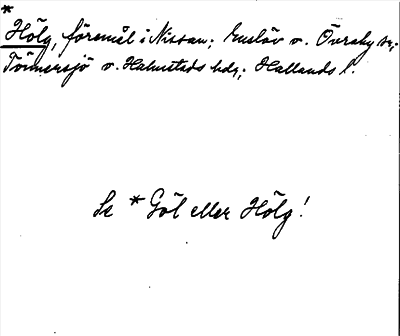 *
Hölg, föremål i Nissan; Enslöv o. Övraby snr;
Tönnersjö o. Halmstads hdr; Hallands l.
Se *Göl eller Hölg!